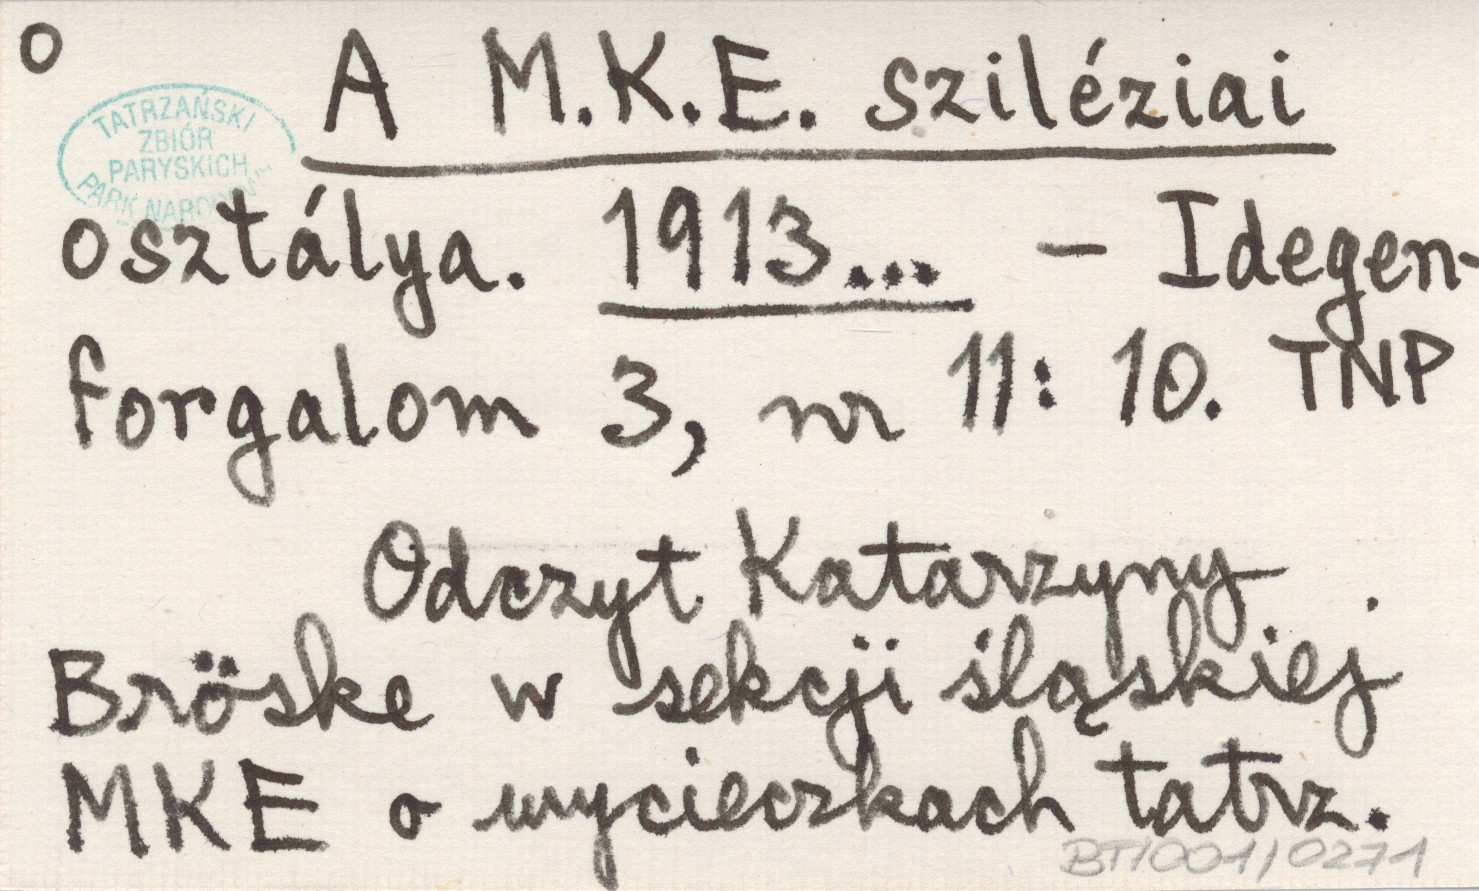 o
A M.K.E. sziléziai
TATRZAŃSKI
ZBIÓR
PARYSKICH
PARK NARODOWY
osztálya. 1913... - Idegen-
forgalom 3, nr 11: 10. TNP
Odczyt Katarzyny
Bröske w sekcji śląskiej
MKE o wycieczkach tatrz.
BT/001/0271